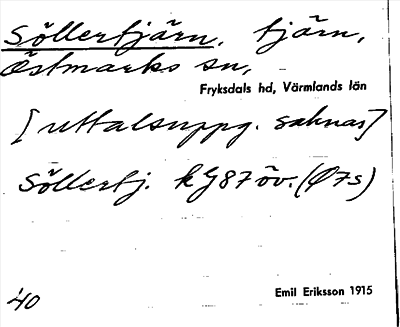 Söllertjärn, tjärn,
Östmarks sn,
Fryksdals hd, Värmlands län
[uttalsuppg. saknas]
Söllertj. kG87öv. (Ø7s)
'40
Emil Eriksson 1915